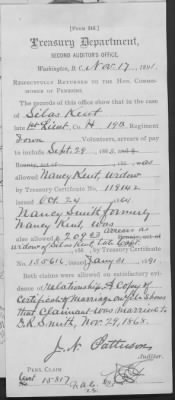 [Form 316.]
Treasury Department,
SECOND AUDITOR'S OFFICE.
Washington, D. C., Nov. 17, 1891.
RESPECTFULLY RETURNED TO THE HON. COMMISSIONER
OF PENSIONS.
The records of this office show that in the case
of Silas Kent
1st Lieut. Co. H 19th Regiment
Iowa Volunteers, arrears of pay
to include Sept. 29, 1863,
was
allowed Nancy Kent, widow
by Treasury Certificate No. 119142
issued Oct. 24
Nancy Smith formerly
Nancy Kent, was
also allowed arrears as
widow of Silas Kent, late Capt.
by Treasury Certificate
No. 155616 issued Jany 31, 1891
Both claims were allowed on satisfactory evidence
of relationship. A copy of
Certificate of Marriage on file shows
that claimant was married to
G. R. Smith, Nov. 29, 1868.
J. N. Patterson
Auditor.
PENS. CLAIM
No. 15817